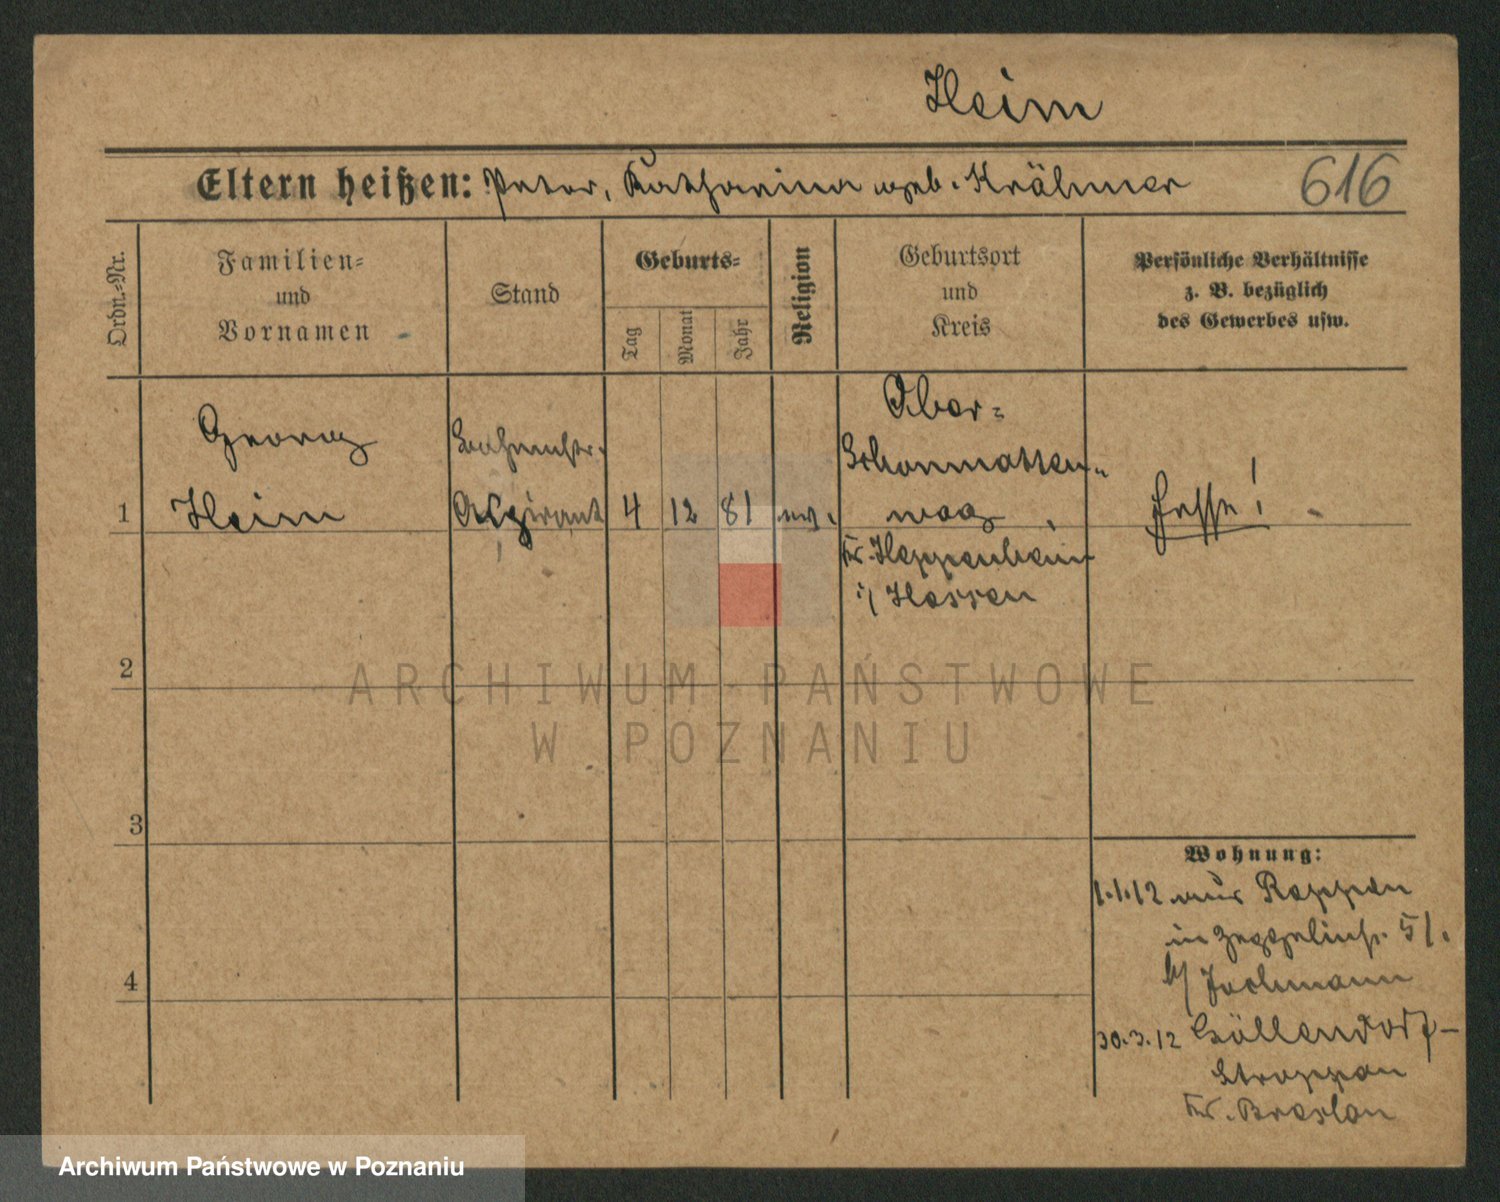 Heim
Eltern heißen: Peter, Katharina geb. Krähmer
616
Ordn.-Nr.
Familien-
und
Vornamen
Stand
Geburts-
Tag
Monat
Jahr
Religion
Geburtsort
und
Kreis
Persönliche Verhältnisse
z. B. bezüglich
des Gewerbes usw.
1
Georg
Heim
Bahnmstr.
Aspirant
4
12
81
ev.
Ober-
Schonmatten-
waag
Kr. Heppenheim
i/ Hessen
Hesse!
2
3
4
Wohnung:
1.1.12 aus Reppen
in Zeppelinstr. 51.
b/ Jachmann
30.3.12
Stroppen
Kr. Breslau
ARCHIWUM PAŃSTWOWE
W POZNANIU
Archiwum Państwowe w Poznaniu